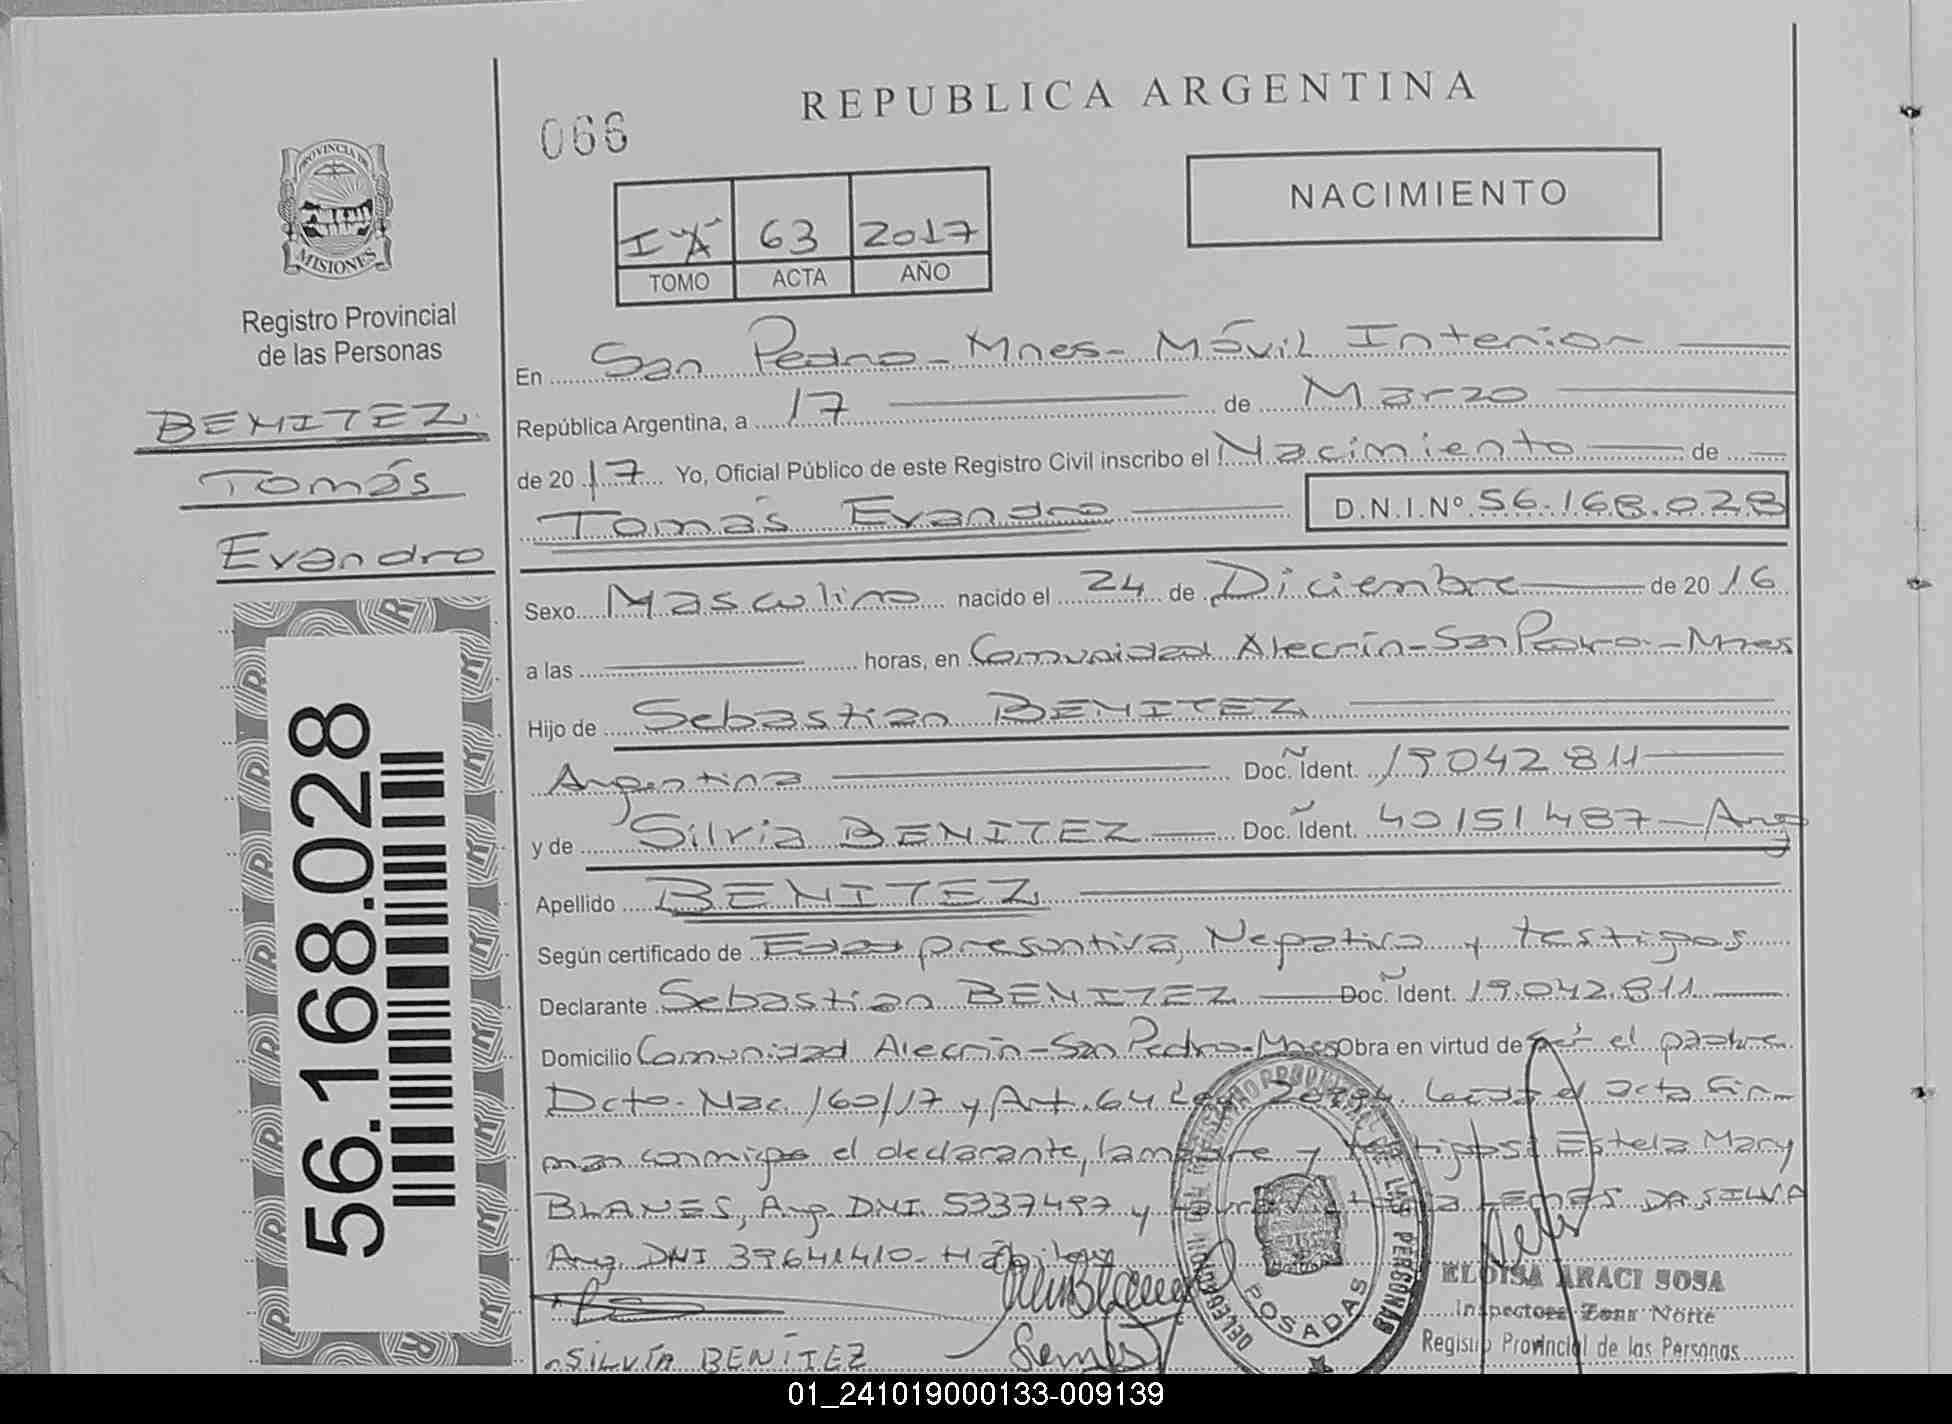 REPUBLICA ARGENTINA
066
NACIMIENTO
63 2017
TOMO ACTA AÑO
PROVINCIA DE
MISIONES
Registro Provincial
de las Personas
BENITEZ
Tomás
Evandro
56.168.028
En San Pedro - Mnes - Móvil Interior
República Argentina, a 17 de Marzo
de 2017 Yo, Oficial Público de este Registro Civil inscribo el Nacimiento de
Tomás Evandro D.N.I.Nº 56.168.028
Sexo Masculino nacido el 24 de Diciembre de 2016
a las horas, en Comunidad Alecrín - San Pedro - Mnes
Hijo de Sebastian BENITEZ
Argentina Doc. Ident. 19042811
y de Silvia BENITEZ Doc. Ident. 40151487 - Arg
Apellido BENITEZ
Según certificado de Edad presuntiva, Negativa y testigos
Declarante Sebastian BENITEZ Doc. Ident. 19.042.811
Domicilio Comunidad Alecrín - San Pedro - Mnes Obra en virtud de ser el padre
Dcto. Nac. 160/17 y Art. 64 Leída el acta fir
man conmigo el declarante, la madre y testigos: Estela Mary
BLANES, Arg. DNI 5337497 y LEMES DA SILVA
Arg. DNI 39641410 -
SILVÍA BENÍTEZ
POSADAS
DE LAS PERSONAS
ELOISA ARACI SOSA
Inspectora Zona Norte
Registro Provincial de las Personas
01_241019000133-009139